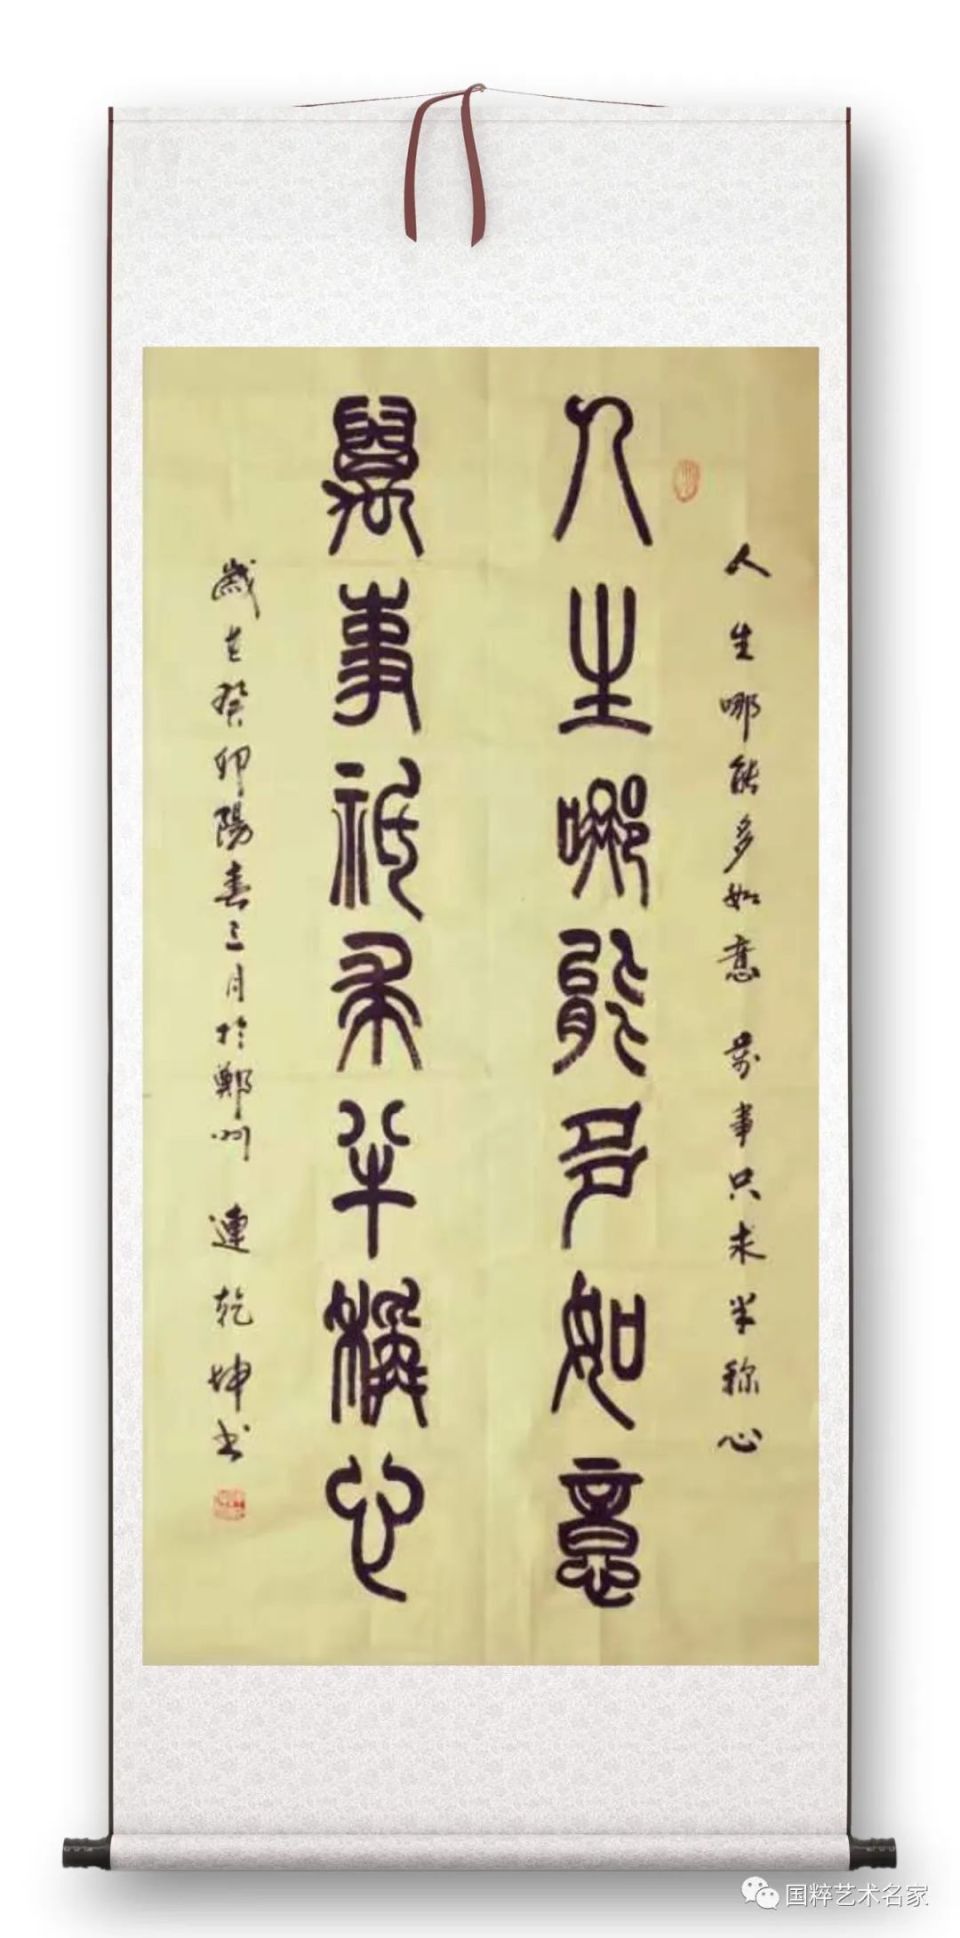 人生哪能多如意 万事只求半称心
人生哪能多如意
萬事祇求半稱心
歲在癸卯陽春三月於鄭州 連乾坤书
国粹艺术名家